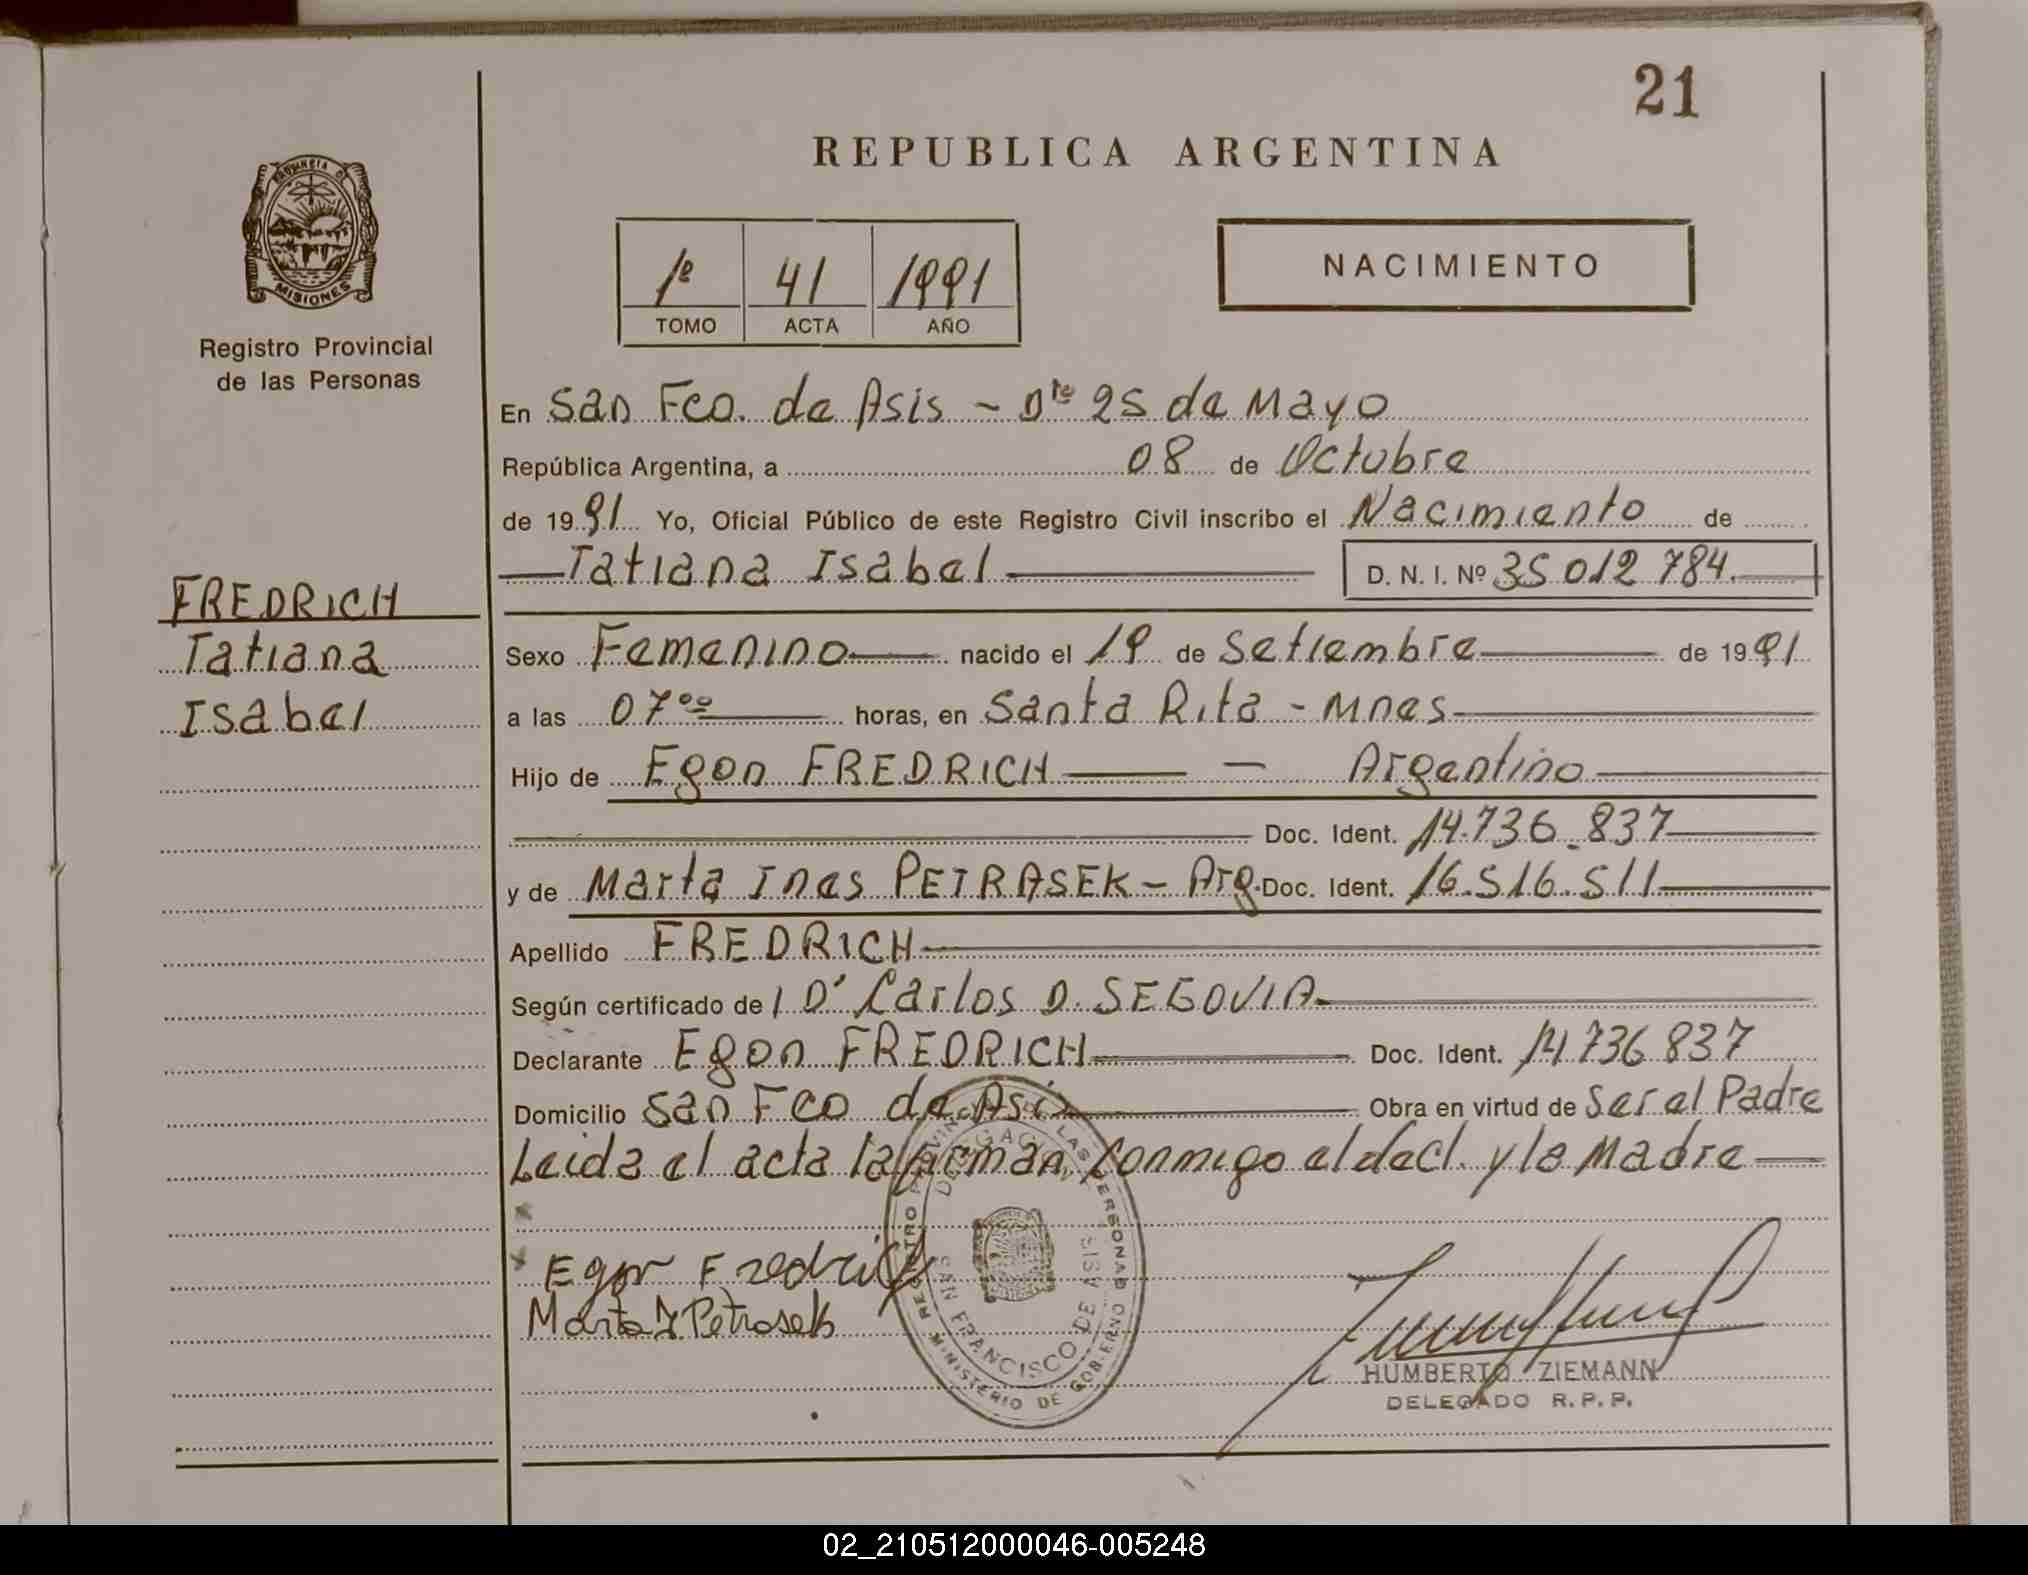 21
REPUBLICA ARGENTINA
PROVINCIA DE
MISIONES
Registro Provincial
de las Personas
1º 41 1991
TOMO ACTA AÑO
NACIMIENTO
En San Fco. de Asis - Dto 25 de Mayo
República Argentina, a 08 de Octubre
de 1991 Yo, Oficial Público de este Registro Civil inscribo el Nacimiento de
Tatiana Isabel D. N. I. Nº 35 012 784.
FREDRICH
Tatiana
Isabel
Sexo Femenino nacido el 19 de Setiembre de 1991
a las 07 ºº horas, en Santa Rita - Mnes
Hijo de Egon FREDRICH - Argentino
Doc. Ident. 14.736.837
y de Marta Ines PETRASEK - Arg. Doc. Ident. 16.516.511
Apellido FREDRICH
Según certificado de l D' Carlos D. SEGOVIA
Declarante Egon FREDRICH Doc. Ident. 14 736 837
Domicilio San Fco de Asis Obra en virtud de Ser el Padre
Leida el acta la firman conmigo el decl. y la Madre
Egon Fredrich
Marta I Petrasek
REGISTRO PROVINCIAL DE LAS PERSONAS
DELEGACION
SAN FRANCISCO DE ASIS
MINISTERIO DE GOBIERNO
HUMBERTO ZIEMANN
DELEGADO R.P.P.
02_210512000046-005248